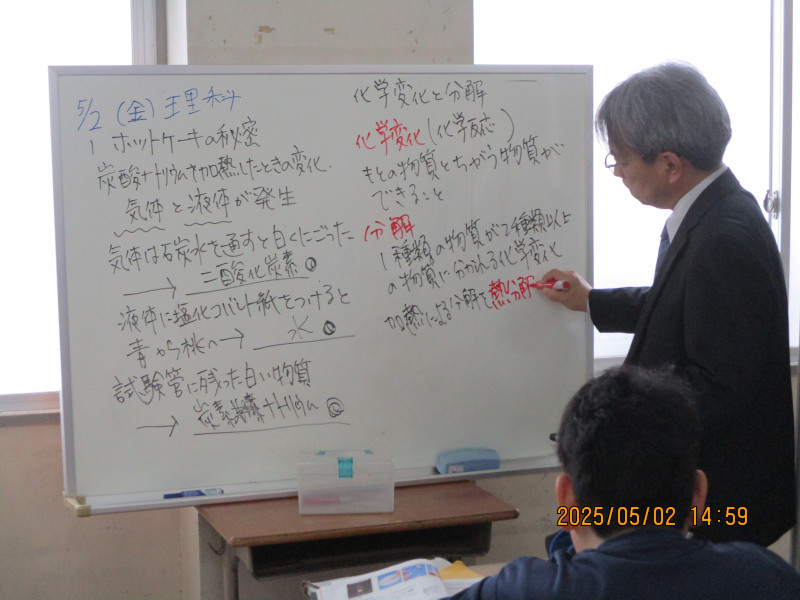 5/2 (金) 理科
1 ホットケーキの秘密
炭酸ナトリウムを加熱したときの変化.
気体と液体が発生
気体は石炭水を通すと白くにごった
→ 二酸化炭素
液体に塩化コバルト紙をつけると
青から桃へ→ 水
試験管に残った白い物質
→ 炭素 ナトリウム
化学変化と分解
化学変化(化学反応)
もとの物質とちがう物質が
できること
分解
1種類の物質が2種類以上
の物質に分かれる化学変化
加熱による分解を熱分解
2025/05/02 14:59